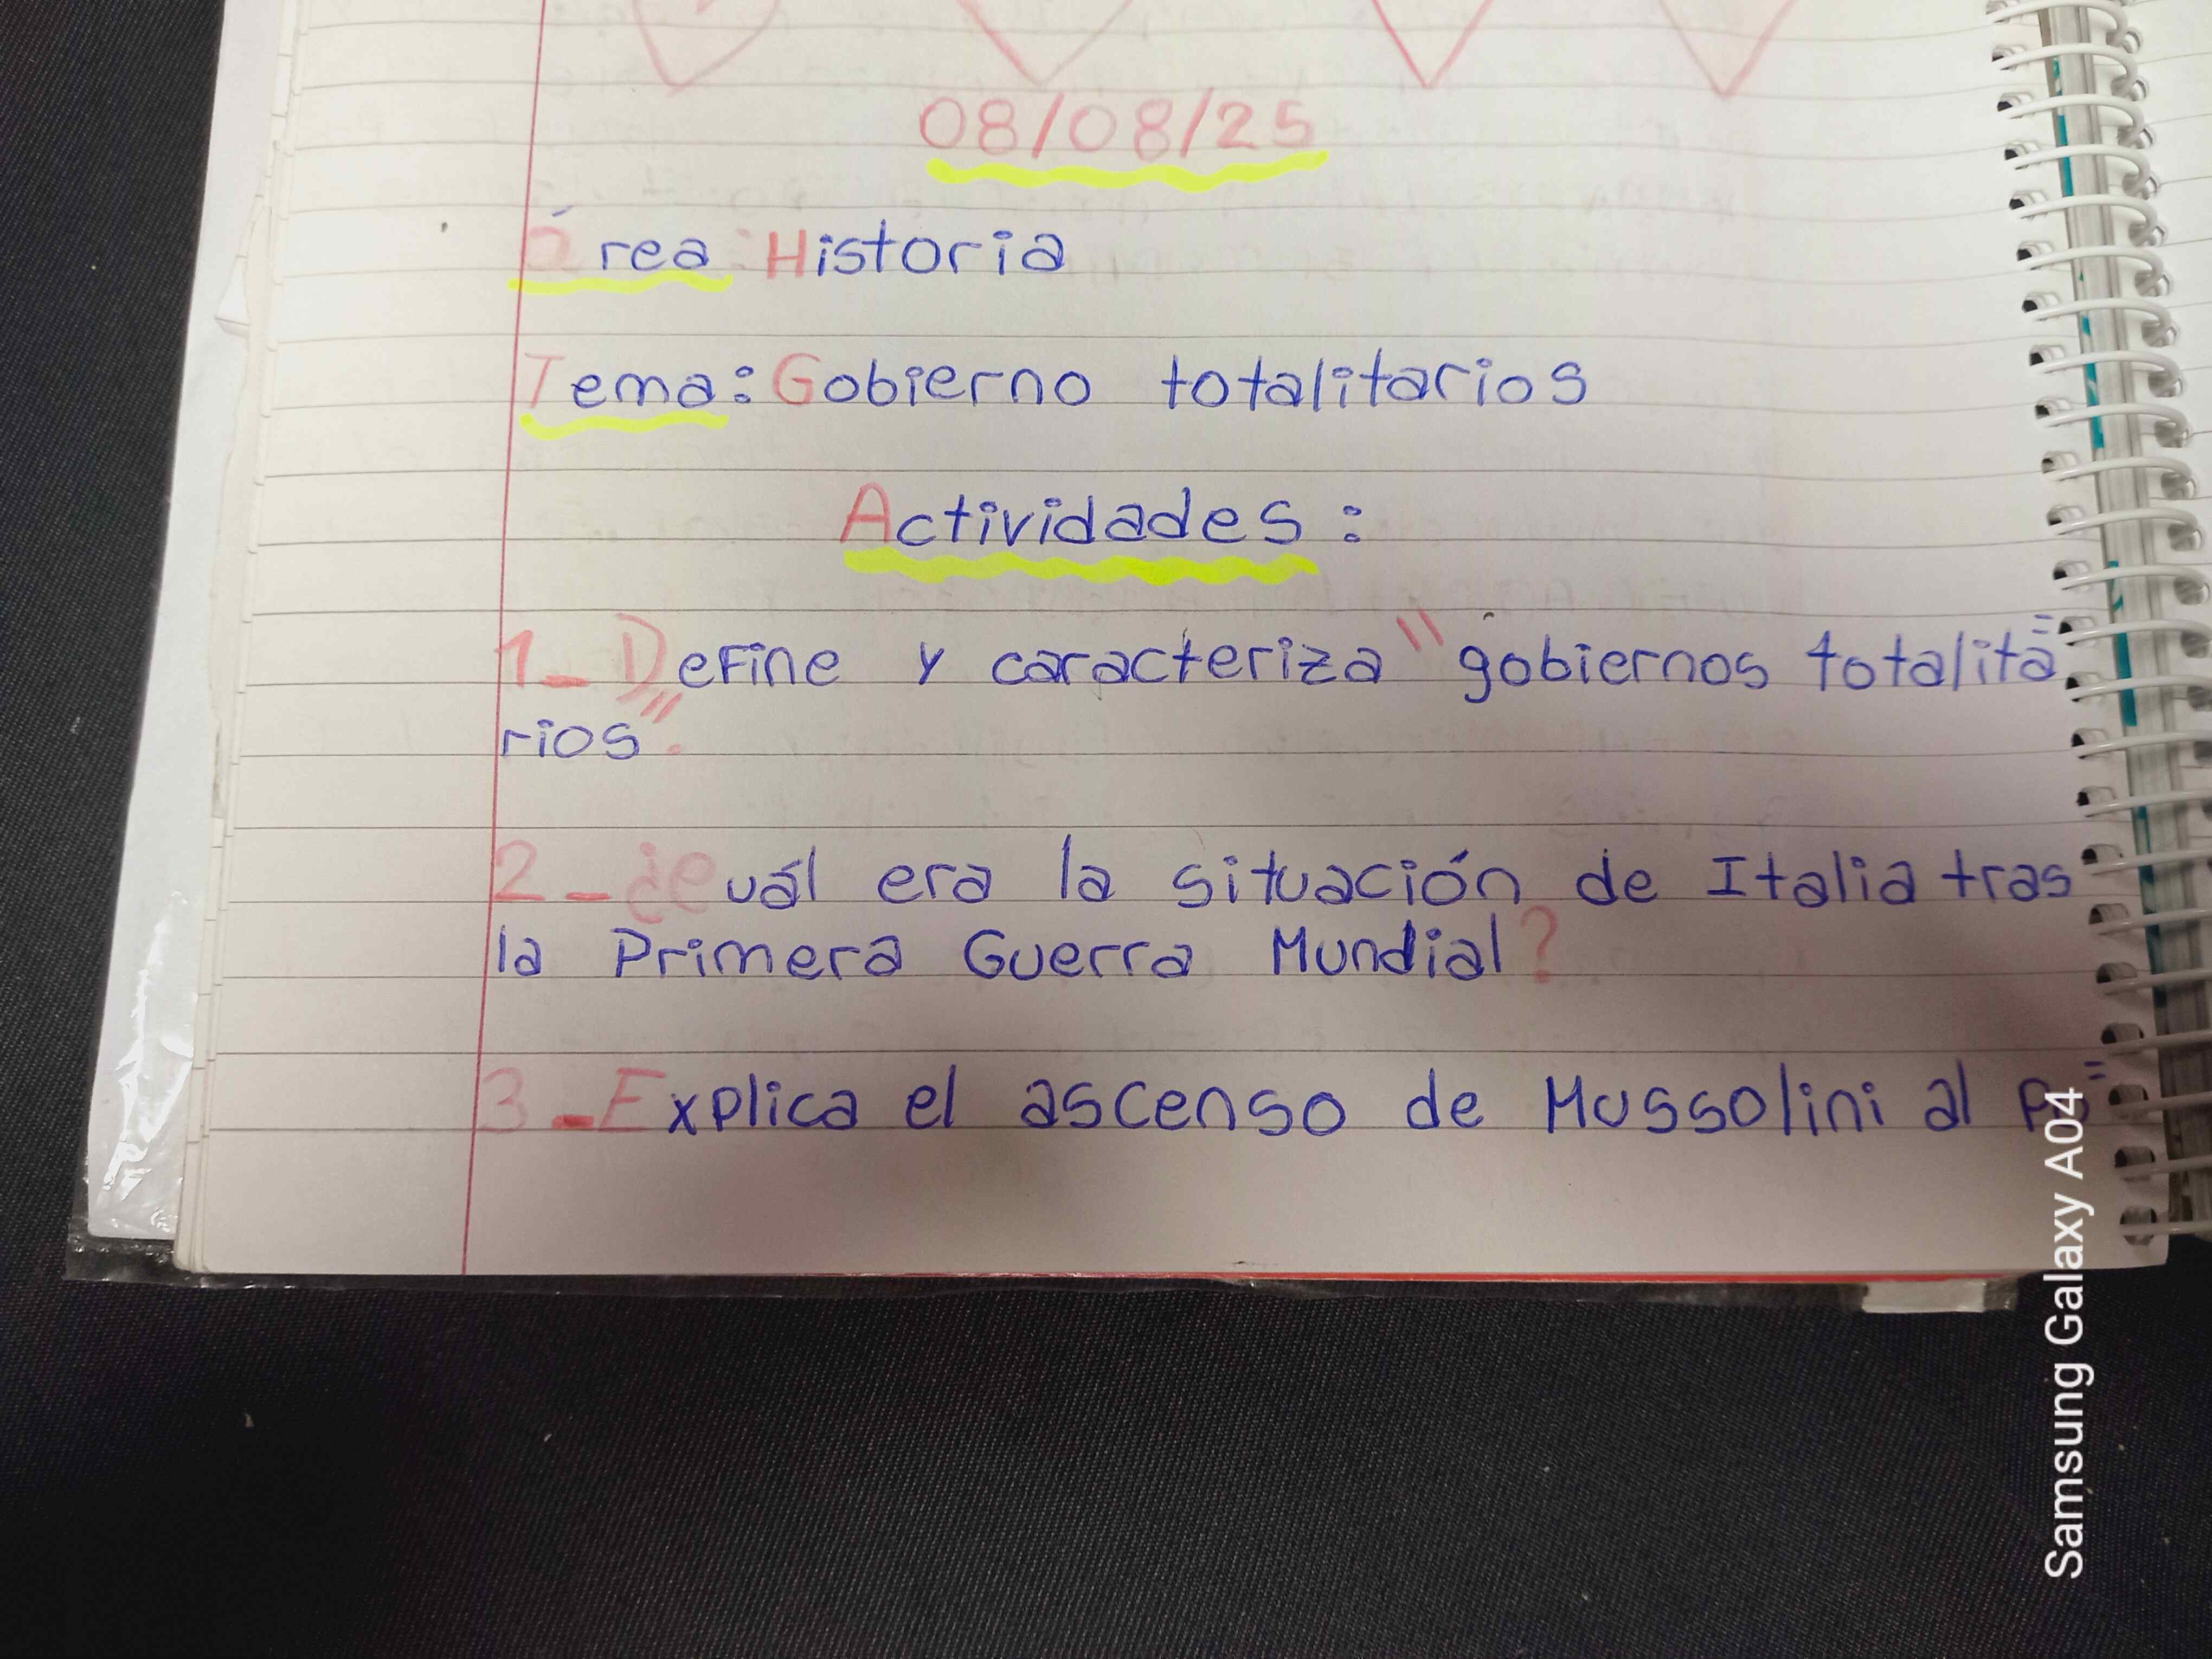 08/08/25
área: Historia
Tema: Gobierno totalitarios
Actividades:
1_ Define y caracteriza "gobiernos totalita=
rios".
2_ ¿Cuál era la situación de Italia tras
la Primera Guerra Mundial?
3_ Explica el ascenso de Mussolini al po=
Samsung Galaxy A04